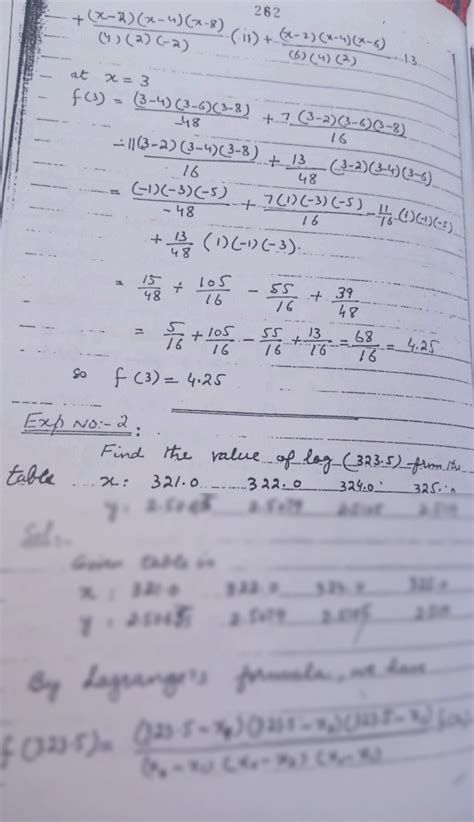 262
+ (x-2)(x-4)(x-8) / (4)(2)(-2) (11) + (x-2)(x-4)(x-6) / (6)(4)(2) 13
at x = 3
f(3) = (3-4)(3-6)(3-8) / -48 + 7(3-2)(3-6)(3-8) / 16
-11(3-2)(3-4)(3-8) / 16 + 13/48 (3-2)(3-4)(3-6)
= (-1)(-3)(-5) / -48 + 7(1)(-3)(-5) / 16 - 11/16 (1)(-1)(-5)
+ 13/48 (1)(-1)(-3).
= 15/48 + 105/16 - 55/16 + 39/48
= 5/16 + 105/16 - 55/16 + 13/16 = 68/16 = 4.25
so f(3) = 4.25
Exp No:- 2 :
Find the value of log (323.5) from the
table x: 321.0 322.0 324.0 325.0
y: 2.50 2.5079 2.5105
Sol:-
Given table is
x : 321.0 322.0 325.0
y : 2.5079 2.5105
By Lagrange's formula, we have
f(323.5) = (323.5 - x) (323.5 - x) (323.5 - x)